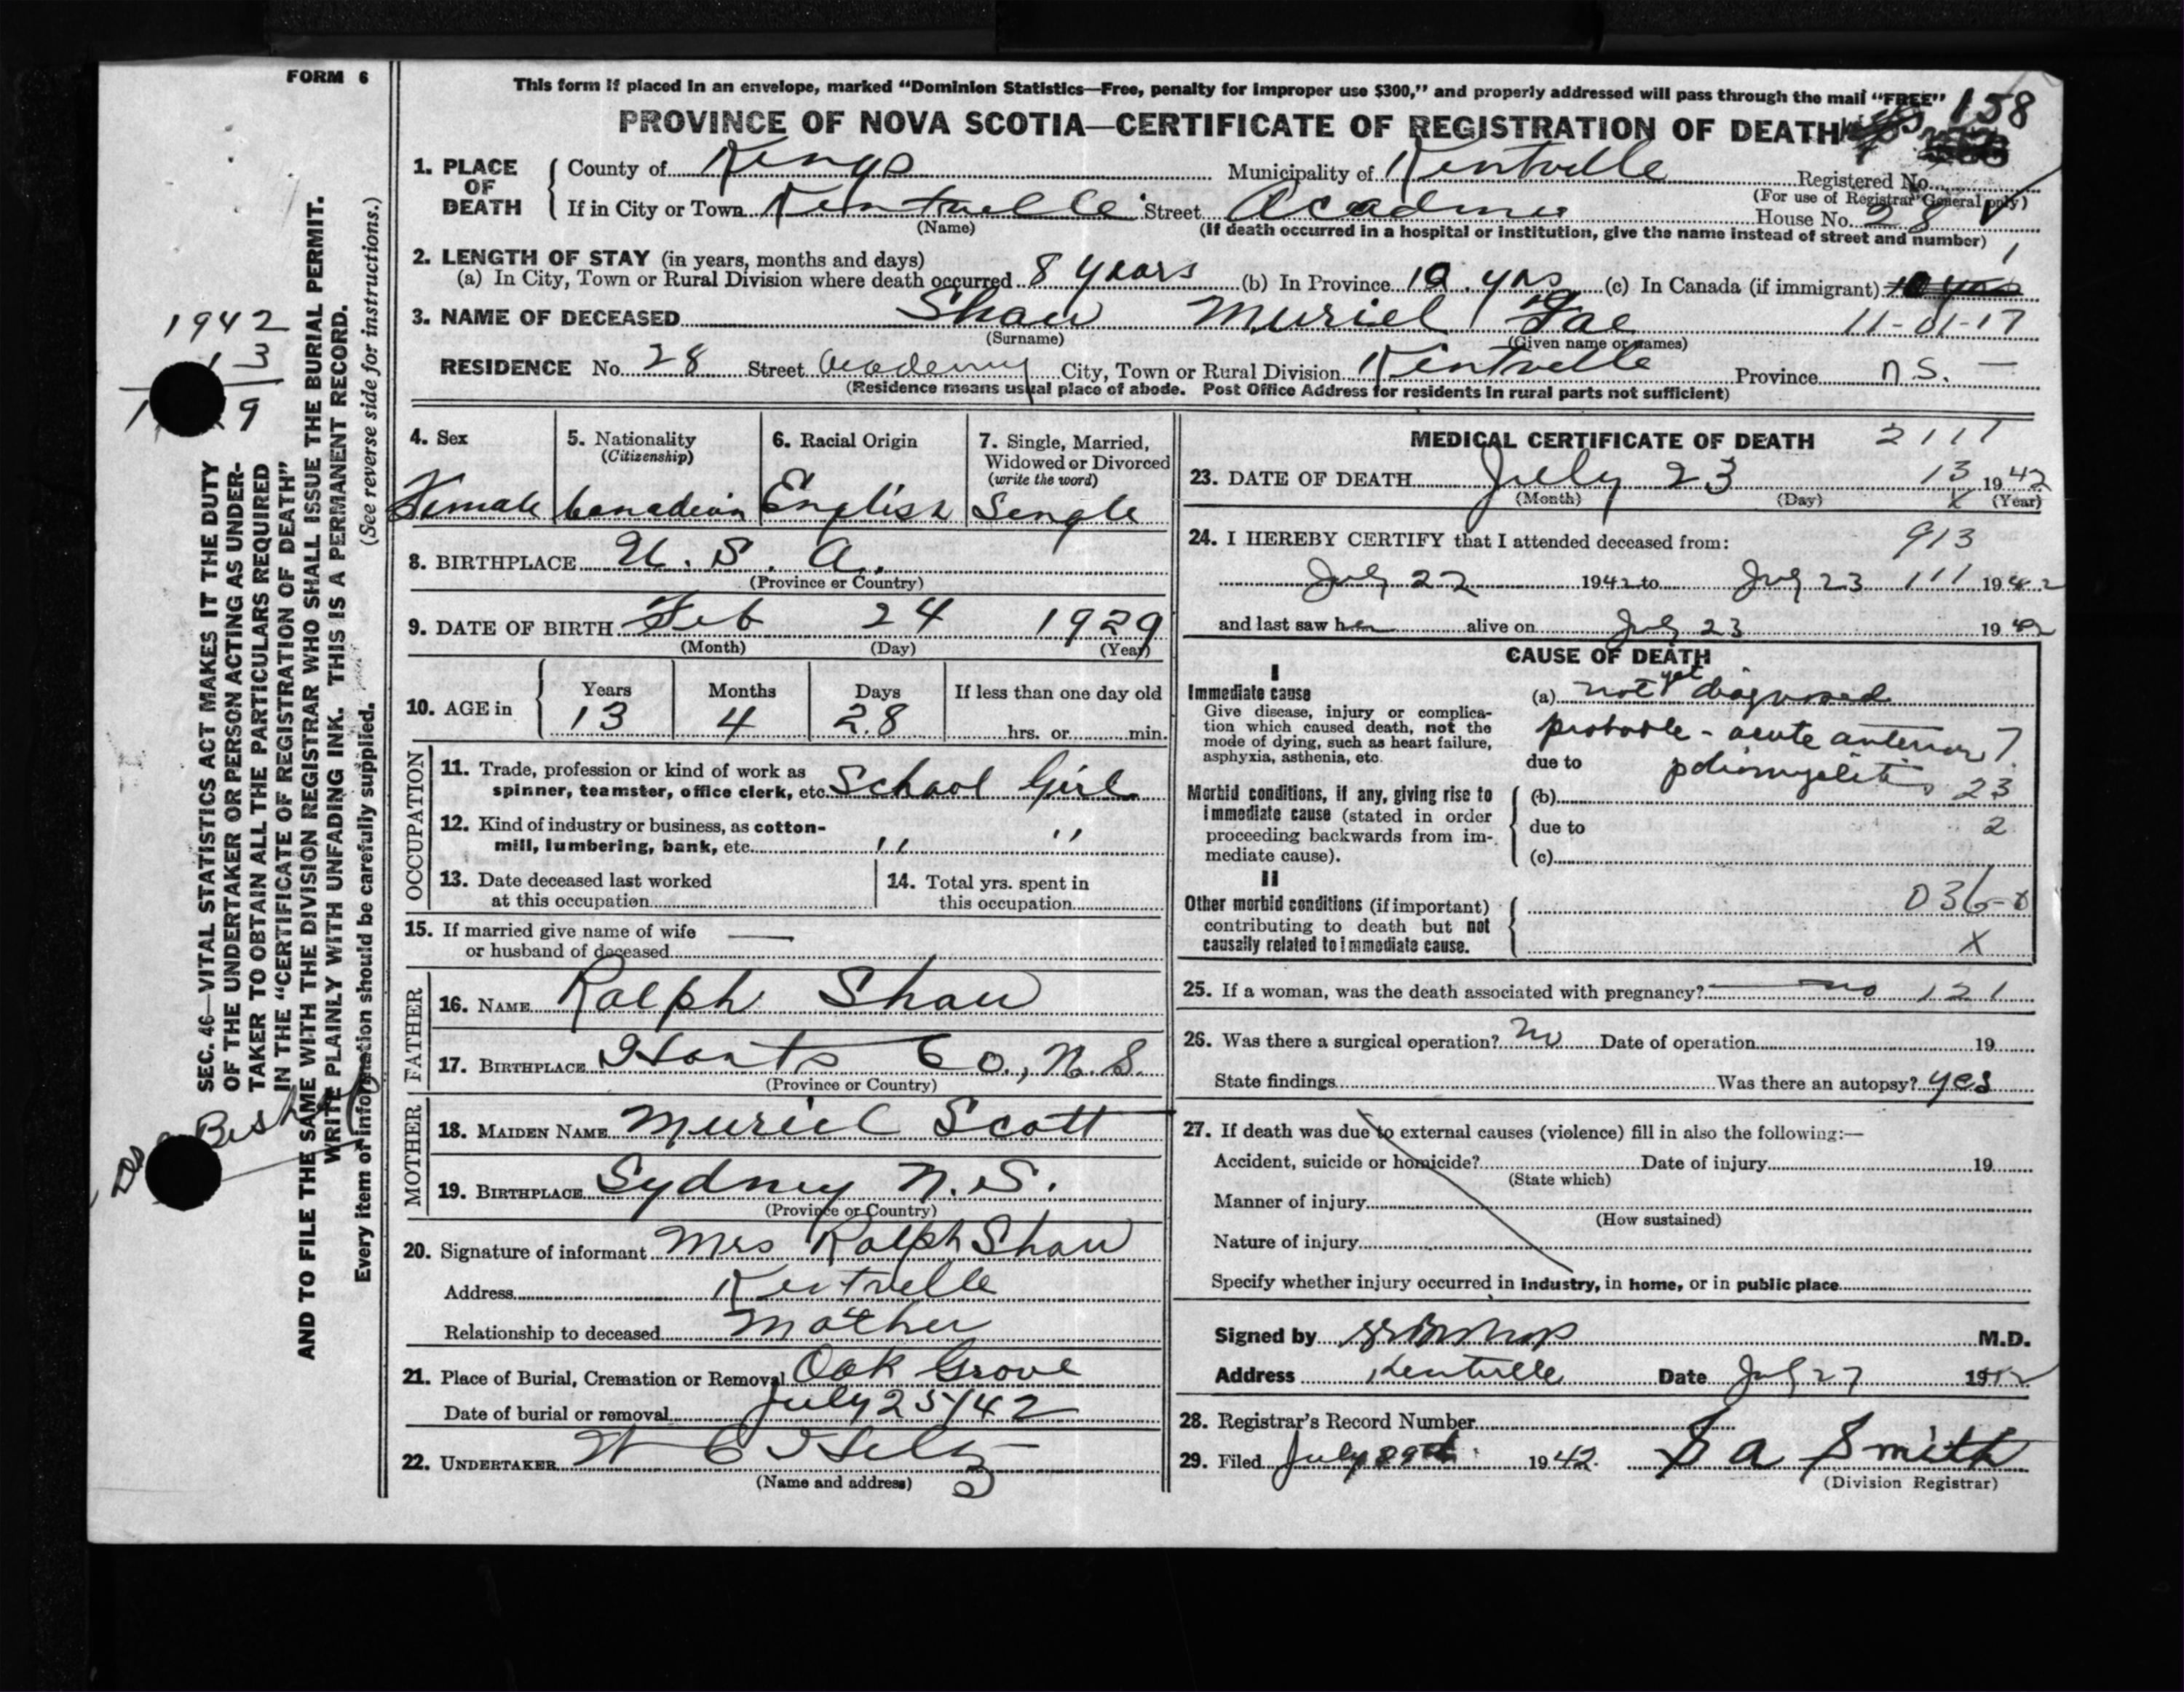 FORM 6
This form if placed in an envelope, marked "Dominion Statistics—Free, penalty for improper use $300," and properly addressed will pass through the mail "FREE"
PROVINCE OF NOVA SCOTIA—CERTIFICATE OF REGISTRATION OF DEATH
158
1. PLACE OF DEATH
County of Kings Municipality of Kentville Registered No.
(For use of Registrar General only)
If in City or Town Kentville Street Academy House No. 28
(Name) (If death occurred in a hospital or institution, give the name instead of street and number)
2. LENGTH OF STAY (in years, months and days)
(a) In City, Town or Rural Division where death occurred 8 years (b) In Province 10 yrs (c) In Canada (if immigrant) 10 yrs
3. NAME OF DECEASED Shaw Muriel Fae 11-01-17
(Surname) (Given name or names)
RESIDENCE No. 28 Street Academy City, Town or Rural Division Kentville Province N.S. —
(Residence means usual place of abode. Post Office Address for residents in rural parts not sufficient)
4. Sex
Female
5. Nationality
(Citizenship)
Canadian
6. Racial Origin
English
7. Single, Married, Widowed or Divorced
(write the word)
Single
8. BIRTHPLACE U. S. A.
(Province or Country)
9. DATE OF BIRTH Feb 24 1929
(Month) (Day) (Year)
10. AGE in
Years Months Days If less than one day old
13 4 28 hrs. or min.
OCCUPATION
11. Trade, profession or kind of work as
spinner, teamster, office clerk, etc. School Girl
12. Kind of industry or business, as cotton-
mill, lumbering, bank, etc. " "
13. Date deceased last worked
at this occupation
14. Total yrs. spent in
this occupation
15. If married give name of wife —
or husband of deceased
FATHER
16. NAME Ralph Shaw
17. BIRTHPLACE Hants Co., N.S.
(Province or Country)
MOTHER
18. MAIDEN NAME Muriel Scott
19. BIRTHPLACE Sydney N.S.
(Province or Country)
20. Signature of informant Mrs Ralph Shaw
Address Kentville
Relationship to deceased Mother
21. Place of Burial, Cremation or Removal Oak Grove
Date of burial or removal July 25/42
22. UNDERTAKER W C
(Name and address)
MEDICAL CERTIFICATE OF DEATH 2111
23. DATE OF DEATH July 23 13 1942
(Month) (Day) (Year)
24. I HEREBY CERTIFY that I attended deceased from: 913
July 22 1942 to July 23 111 1942
and last saw her alive on July 23 1942
CAUSE OF DEATH
I
Immediate cause
Give disease, injury or complica-
tion which caused death, not the
mode of dying, such as heart failure,
asphyxia, asthenia, etc.
(a) not yet diagnosed
probable - acute anterior ?
due to poliomyelitis
Morbid conditions, if any, giving rise to
immediate cause (stated in order
proceeding backwards from im-
mediate cause).
(b) 23
due to 2
(c)
II
Other morbid conditions (if important)
contributing to death but not
causally related to immediate cause.
036-0
X
25. If a woman, was the death associated with pregnancy? no 121
26. Was there a surgical operation? no Date of operation 19
State findings Was there an autopsy? yes
27. If death was due to external causes (violence) fill in also the following:—
Accident, suicide or homicide? Date of injury 19
(State which)
Manner of injury
(How sustained)
Nature of injury
Specify whether injury occurred in industry, in home, or in public place
Signed by Bishop M.D.
Address Kentville Date July 27 1942
28. Registrar's Record Number
29. Filed July 1942. Smith
(Division Registrar)
SEC. 46—VITAL STATISTICS ACT MAKES IT THE DUTY
OF THE UNDERTAKER OR PERSON ACTING AS UNDER-
TAKER TO OBTAIN ALL THE PARTICULARS REQUIRED
IN THE "CERTIFICATE OF REGISTRATION OF DEATH"
AND TO FILE THE SAME WITH THE DIVISION REGISTRAR WHO SHALL ISSUE THE BURIAL PERMIT.
WRITE PLAINLY WITH UNFADING INK. THIS IS A PERMANENT RECORD.
Every item of information should be carefully supplied. (See reverse side for instructions.)
1942
9